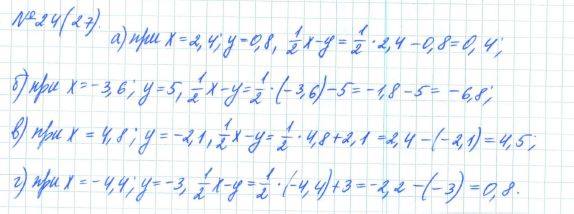 №24(27).
а) при x = 2,4; y = 0,8, 1/2 x - y = 1/2 · 2,4 - 0,8 = 0,4;
б) при x = -3,6; y = 5, 1/2 x - y = 1/2 · (-3,6) - 5 = -1,8 - 5 = -6,8;
в) при x = 4,8; y = -2,1, 1/2 x - y = 1/2 · 4,8 + 2,1 = 2,4 - (-2,1) = 4,5;
г) при x = -4,4; y = -3, 1/2 x - y = 1/2 · (-4,4) + 3 = -2,2 - (-3) = 0,8.